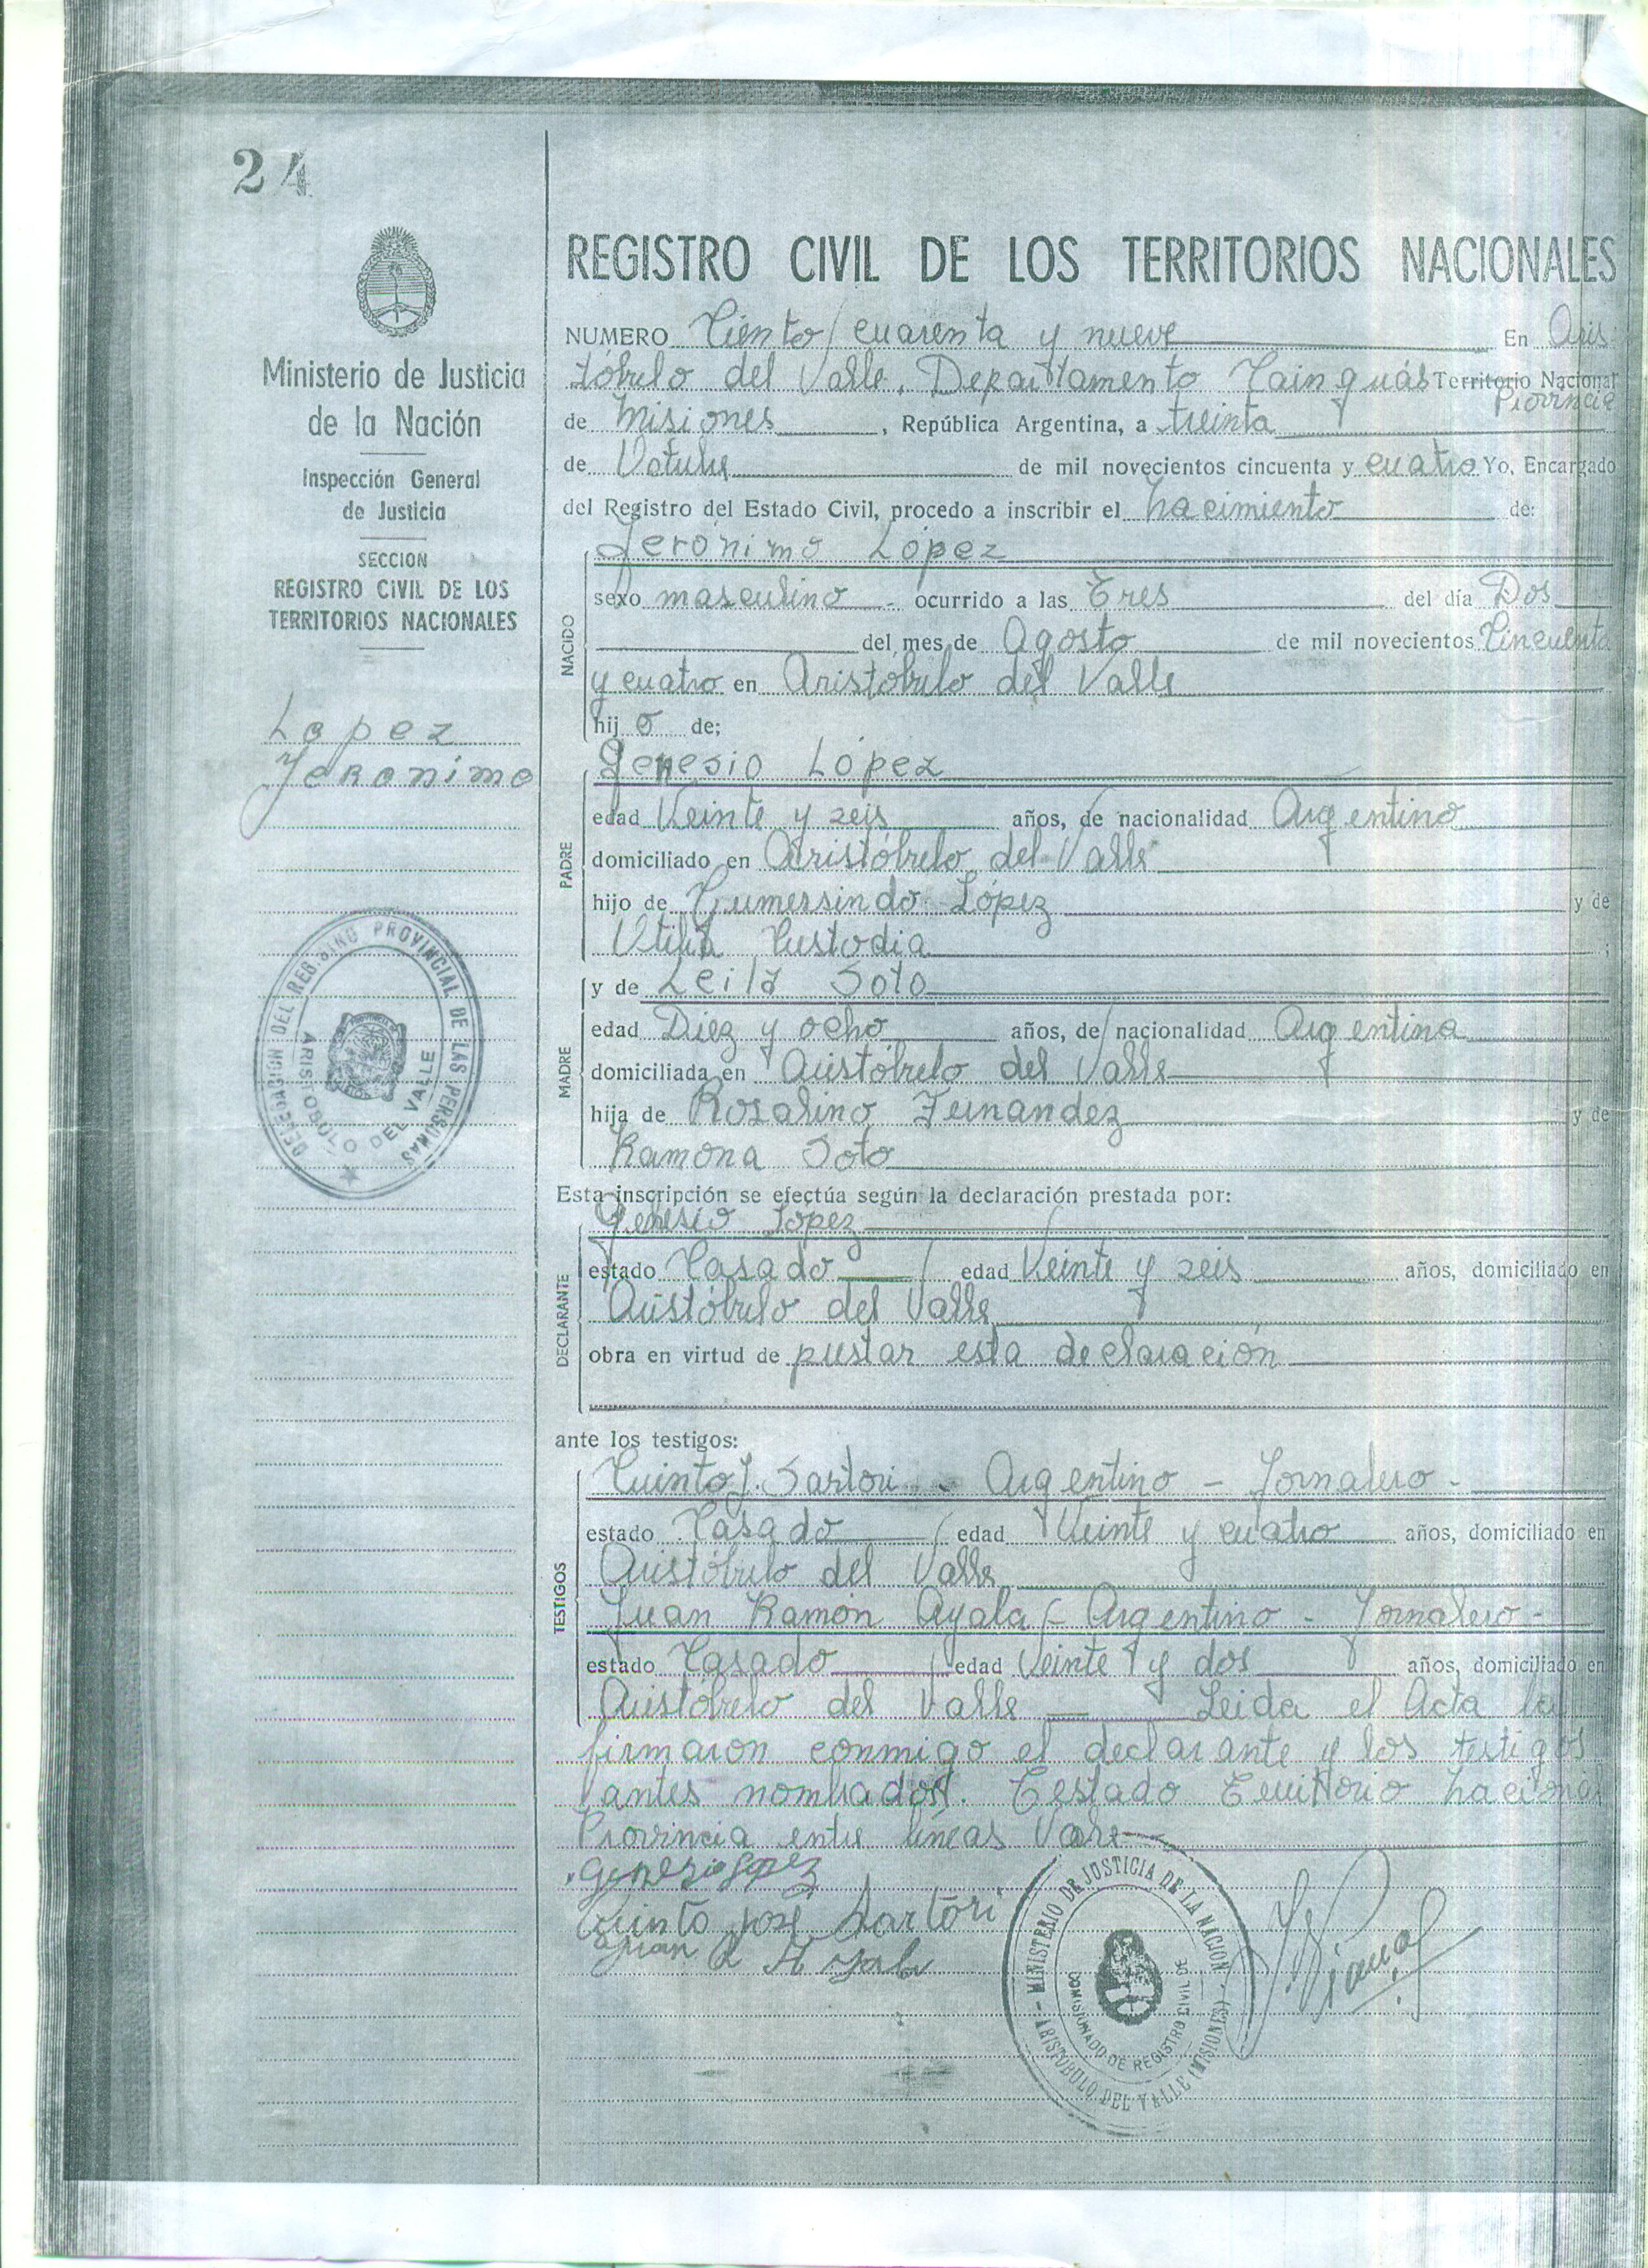 24
Ministerio de Justicia
de la Nación
Inspección General
de Justicia
SECCION
REGISTRO CIVIL DE LOS
TERRITORIOS NACIONALES
Lopez
Jeronimo
DELEGACION DEL REGISTRO PROVINCIAL DE LAS PERSONAS
ARISTOBULO DEL VALLE
REGISTRO CIVIL DE LOS TERRITORIOS NACIONALES
NUMERO Ciento cuarenta y nueve En Aris
tóbulo del Valle, Departamento Cainguás Territorio Nacional
Provincia
de Misiones, República Argentina, a treinta
de Octubre de mil novecientos cincuenta y cuatro Yo, Encargado
del Registro del Estado Civil, procedo a inscribir el nacimiento de:
Jerónimo López
NACIDO
sexo masculino ocurrido a las Tres del día Dos
del mes de Agosto de mil novecientos Cincuenta
y cuatro en Aristóbulo del Valle
hijo de;
Genesio López
PADRE
edad Veinte y zeis años, de nacionalidad Argentino
domiciliado en Aristóbulo del Valle
hijo de Gumersindo López y de
Custodia
y de Leila Soto
MADRE
edad Diez y ocho años, de nacionalidad Argentina
domiciliada en Aristóbulo del Valle
hija de Rosalino Fernandez y de
Ramona Soto
Esta inscripción se efectúa según la declaración prestada por:
Genesio Lopez
DECLARANTE
estado Casado edad Veinte y zeis años, domiciliado en
Aristóbulo del Valle
obra en virtud de prestar esta declaración
ante los testigos:
TESTIGOS
Quinto J. Sartori - Argentino - Jornalero -
estado Casado edad Veinte y cuatro años, domiciliado en
Aristóbulo del Valle
Juan Ramón Ayala - Argentino - Jornalero -
estado Casado edad Veinte y dos años, domiciliado en
Aristóbulo del Valle Leida el Acta la
firmaron conmigo el declarante y los testigos
antes nombrados. Testado Territorio Nacional
Provincia entre lineas Vale
Genesio Lopez
Quinto José Sartori
Juan R Ayala
MINISTERIO DE JUSTICIA DE LA NACION
COMISIONADO DE REGISTRO CIVIL DE
ARISTOBULO DEL VALLE (MISIONES)